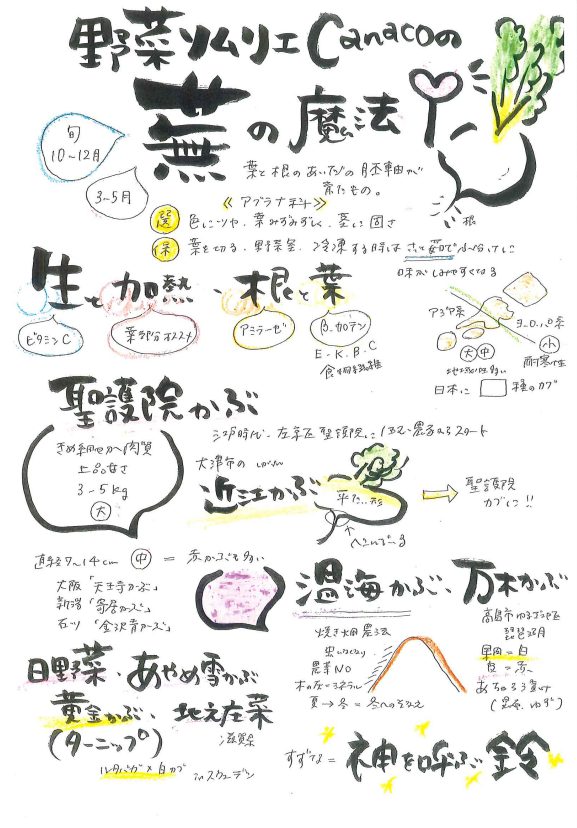 野菜ソムリエCanacoの
蕪の魔法
旬
10〜12月
3〜5月
葉と根のあいだの胚軸が
育たもの。
《アブラナ科》
選 色につや、葉みずみずしく、茎に固さ
保 葉を切る、野菜室、冷凍する時はさっと茹で小分けに
味がしみやすくなる
根
生と加熱・根と葉
ビタミンC
葉部分オススメ
アミラーゼ
β-カロテン
E・K・B・C
食物繊維
アジア系
ヨーロッパ系
大 中
小
耐寒性
日本に 種のカブ
聖護院かぶ
江戸時代、左京区聖護院に
スタート
きめ細やか肉質
上品な甘さ
3〜5kg
大
大津市の
近江かぶ
平た…形
聖護院
カブに!!
直径7〜14cm 中 = 赤かぶも多い
大阪「天王寺かぶ」
新潟「寄居かぶ」
石川「金沢青かぶ」
温海かぶ、万木かぶ
焼き畑農法
虫
農薬NO
木の灰=ミネラル
夏→冬=冬へ
高島市
琵琶湖
果肉=白
皮=赤
(昆布、ゆず)
日野菜、あやめ雪かぶ
黄金かぶ、地元左菜
(ターニップ)
滋賀県
ルタバガ×白カブ inスウェーデン
すずな=神を呼ぶ鈴